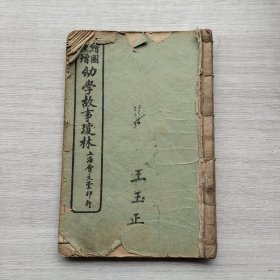 繪圖
重增
幼學故事瓊林
上海會文堂印行
王玉正